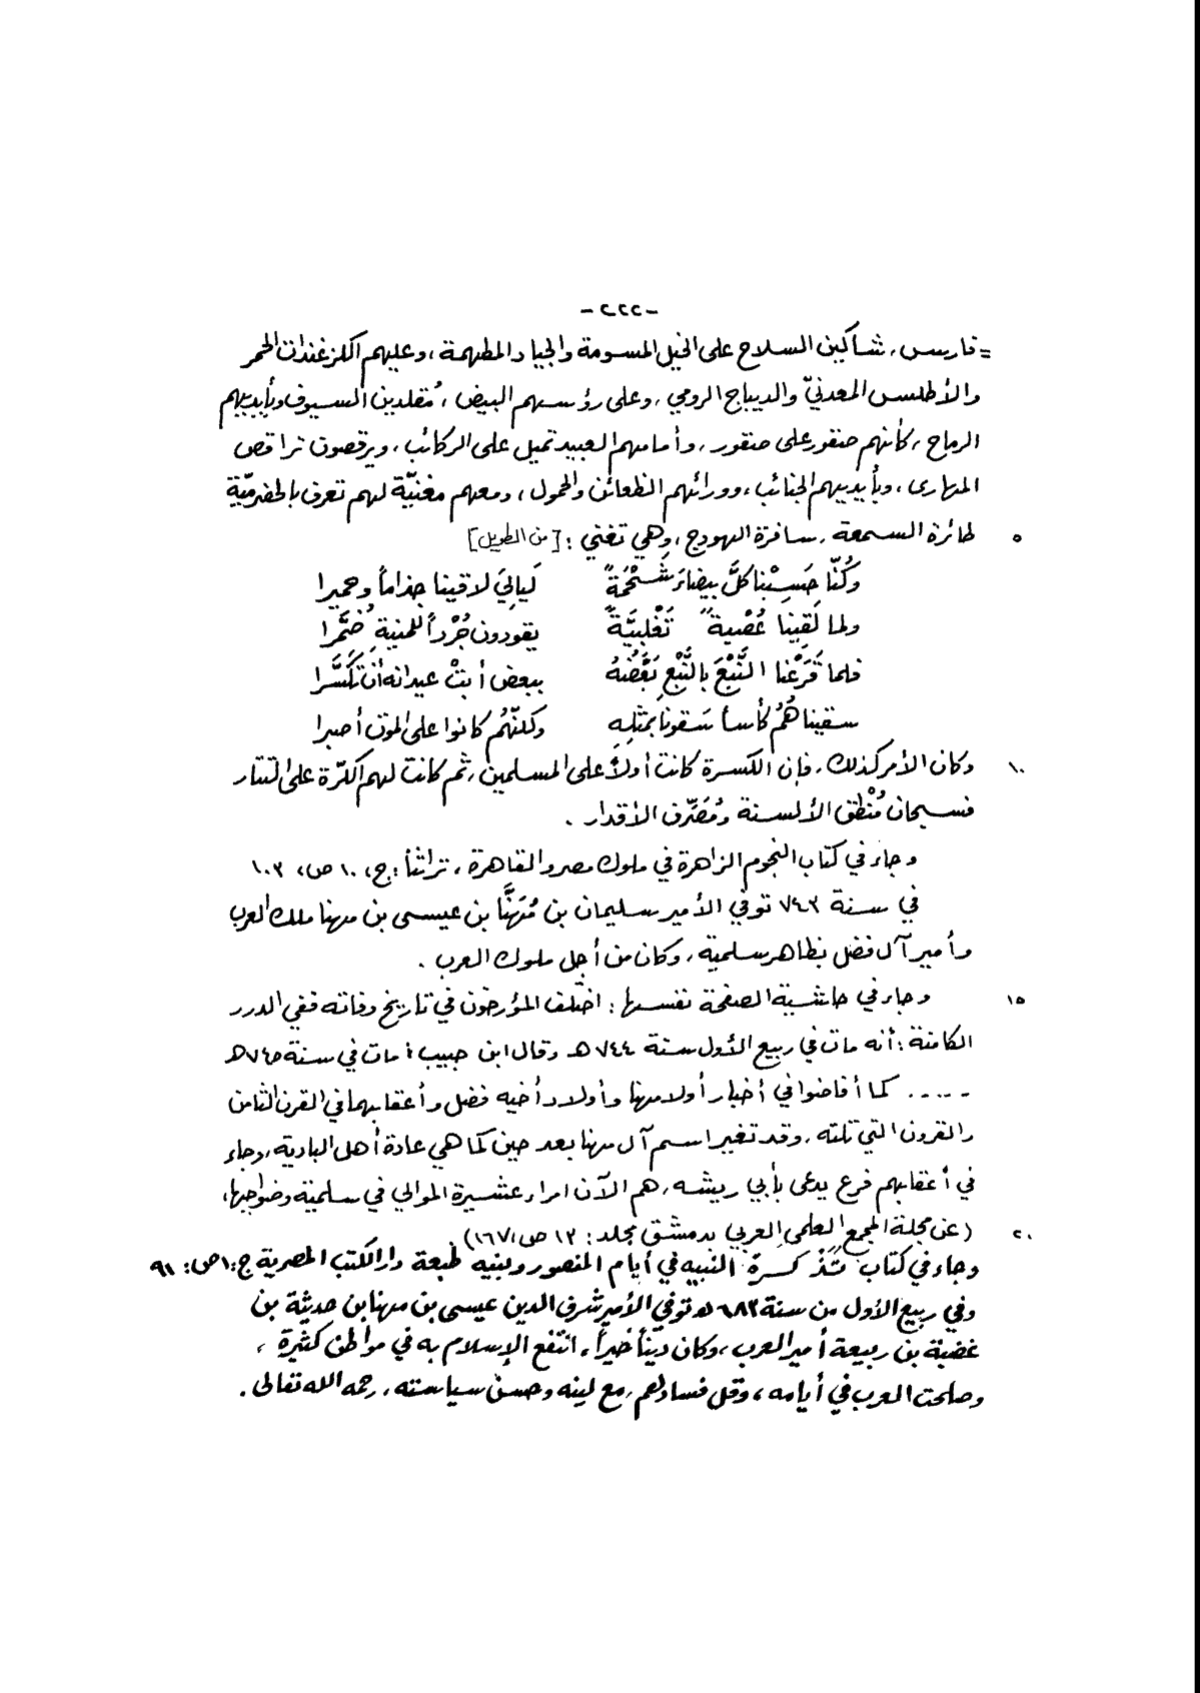 -٢٢٢-
= فارس، شاكين السلاح على الخيل المسومة والجياد المطهمة، وعليهم الكزغندات الحمر
والأطلس المعدنيّ والديباج الرومي، وعلى رؤسهم البيض، مُقلدين السيوف وبأيديهم
الرماح، كأنهم صقور على صقور، وأمامهم العبيد تميل على الركائب، ويرقصون تراقص
المهارى، وبأيديهم الجنائب، وورائهم الظعائن والحمول، ومعهم مغنيّة لهم تعرف بالحضرميّة
٥ طائرة السمعة، سافرة الهودج، وهي تغني : [من الطويل]
وكُنّا حَسِبْنا كلَّ بيضاءَ شَحْمَةً    لَيالِيَ لاقينا جذاماً وحميرا
ولما لَقِينا عُصْبيةً تَغْلِبيَّةً    يقودون جُرْداً للمنيةِ ضُمَّرا
فلما قَرَعْنا النَّبْعَ بالنَّبْعِ بَعْضَهُ    ببعض أبتْ عيدانه أن تَكَسَّرا
سقيناهُمُ كأساً سَقونا بمثلِهِ    وكلنّهُم كانوا على الموت أصبرا
١٠ وكان الأمر كذلك، فإن الكسرة كانت أولاً على المسلمين، ثم كانت لهم الكرّة على التتار
فسبحان مُنْطق الألسنة ومُصَرِّف الأقدار .
وجاء في كتاب النجوم الزاهرة في ملوك مصر والقاهرة، تراثنا: ج، ١٠ ص، ١٠٣
في سنة ٧٤٣ توفي الأمير سليمان بن مُهَنَّا بن عيسى بن مهنا ملك العرب
وأمير آل فضل بظاهر سلمية، وكان من أجل ملوك العرب .
١٥ وجاء في حاشية الصفحة نفسها : اختلف المؤرخون في تاريخ وفاته ففي الدرر
الكامنة : أنه مات في ربيع الأول سنة ٧٤٤ هـ وقال ابن حبيب : مات في سنة ٧٤٥ هـ
..... كما أفاضوا في أخبار أولاد مهنا وأولاد أخيه فضل وأعقابهما في القرن الثامن
والقرون التي تلته، وقد تغير اسم آل مهنا بعد حين كما هي عادة أهل البادية، وجاء
في أعقابهم فرع يدعى بأبي ريشه، هم الآن امراء عشيرة الموالي في سلمية وضواحيها،
٢٠ (عن مجلة المجمع العلمي العربي بدمشق مجلد : ١٣ ص، ١٦٧)
وجاء في كتاب تَذْكِرة النبيه في أيام المنصور وبنيه طبعة دار الكتب المصرية ج : ١ ص : ٩١
وفي ربيع الأول من سنة ٦٨٣ هـ توفي الأمير شرف الدين عيسى بن مهنا بن حديثة بن
غضبة بن ربيعة أمير العرب، وكان ديناً خيراً، انتفع الإسلام به في مواطن كثيرة،
وصلحت العرب في أيامه، وقل فسادهم، مع لينه وحسن سياسته، رحمه الله تعالى .